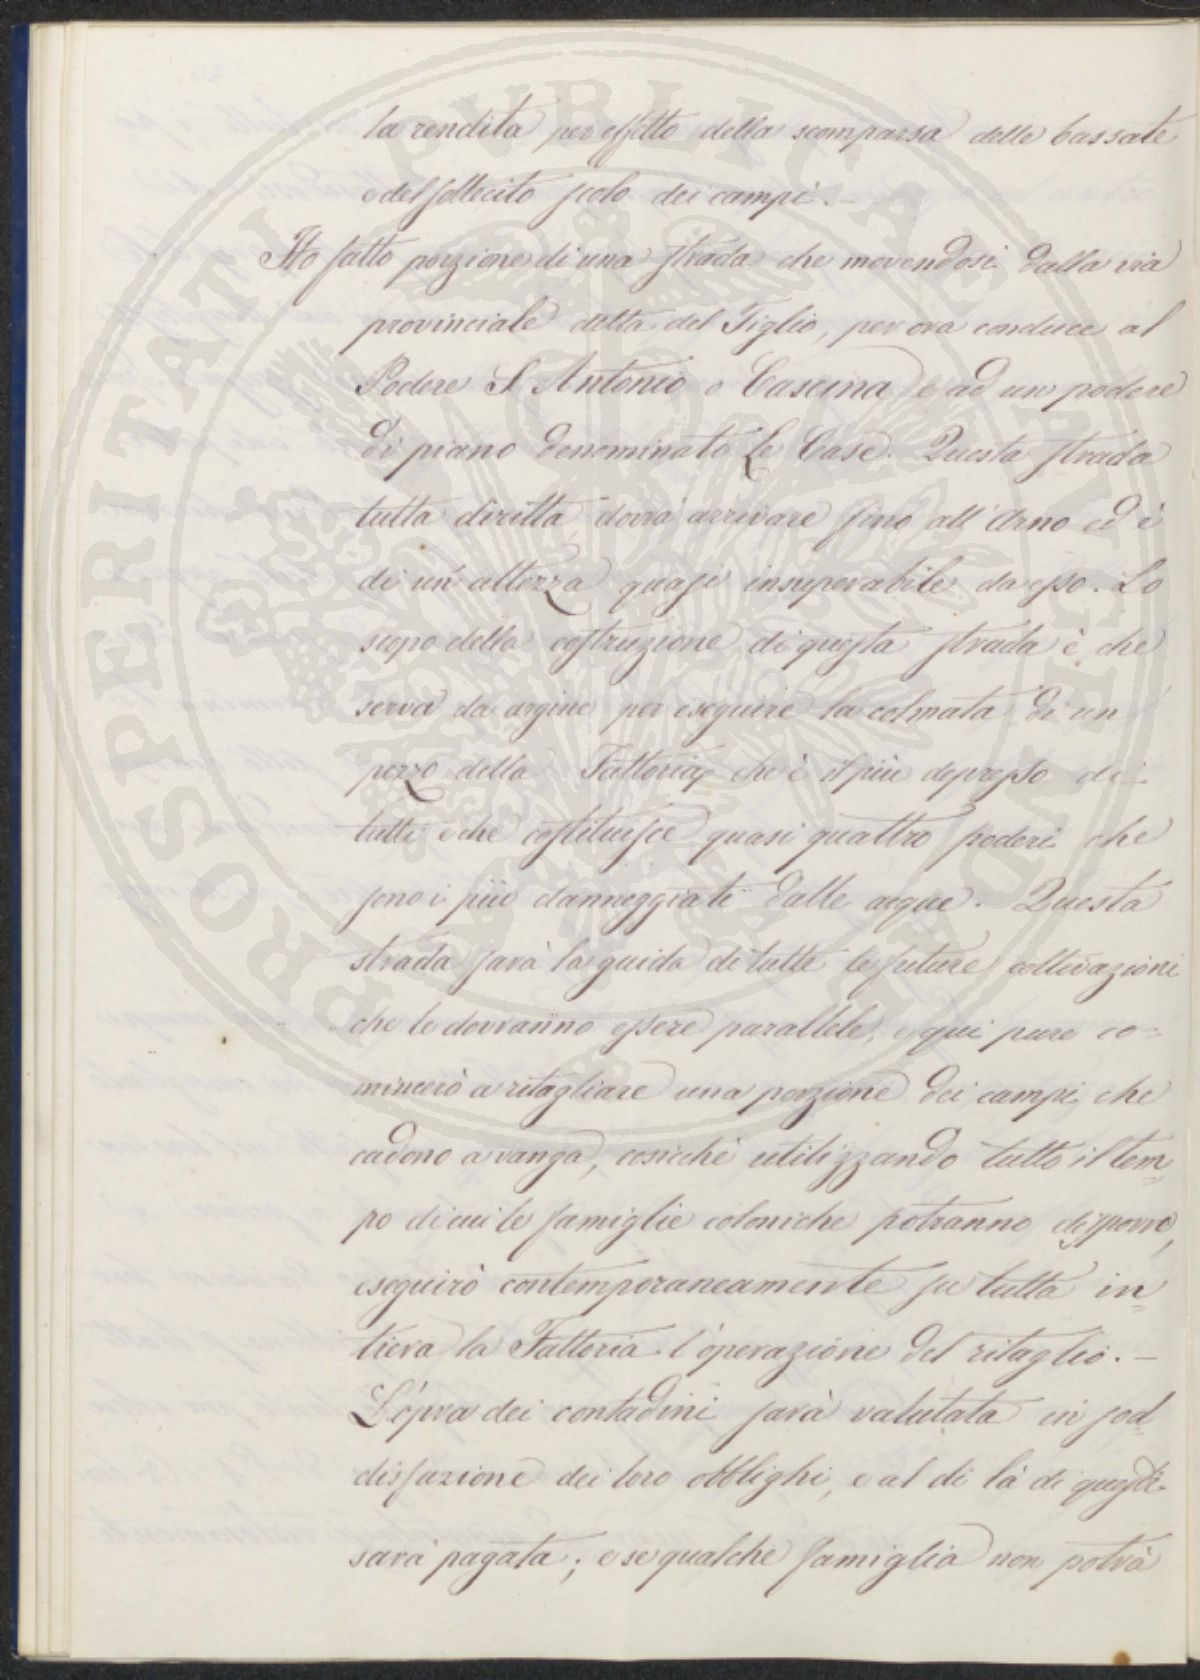 la rendita per effetto della scomparsa delle bassate
e del sollecito scolo dei campi. —
Ho fatto porzione di una strada che movendosi dalla via
provinciale detta del Tiglio, per ora conduce al
Podere S. Antonio o Cascina e ad un podere
di piano denominato Le Case. Questa strada
tutta diritta dovrà arrivare fino all'Arno ed è
di un'altezza quasi insuperabile da esso. Lo
scopo della costruzione di questa strada è che
serva da argine per eseguire la colmata di un
pezzo della Fattoria, che è il più depresso di
tutti e che costituisce quasi quattro poderi che
sono i più danneggiati dalle acque. Questa
strada sarà la guida di tutte le future coltivazioni
che le dovranno essere parallele, e qui pure co=
mincerò a ritagliare una porzione dei campi che
cadono a vanga, cosicchè utilizzando tutto il tem=
po di cui le famiglie coloniche potranno disporre,
eseguirò contemporaneamente su tutta in=
tiera la Fattoria l'operazione del ritaglio. —
L'opra dei contadini sarà valutata in sod=
disfazione dei loro obblighi, e al di là di questi
sarà pagata; e se qualche famiglia non potrà
PROSPERITATI PUBLICAE AUGENDAE